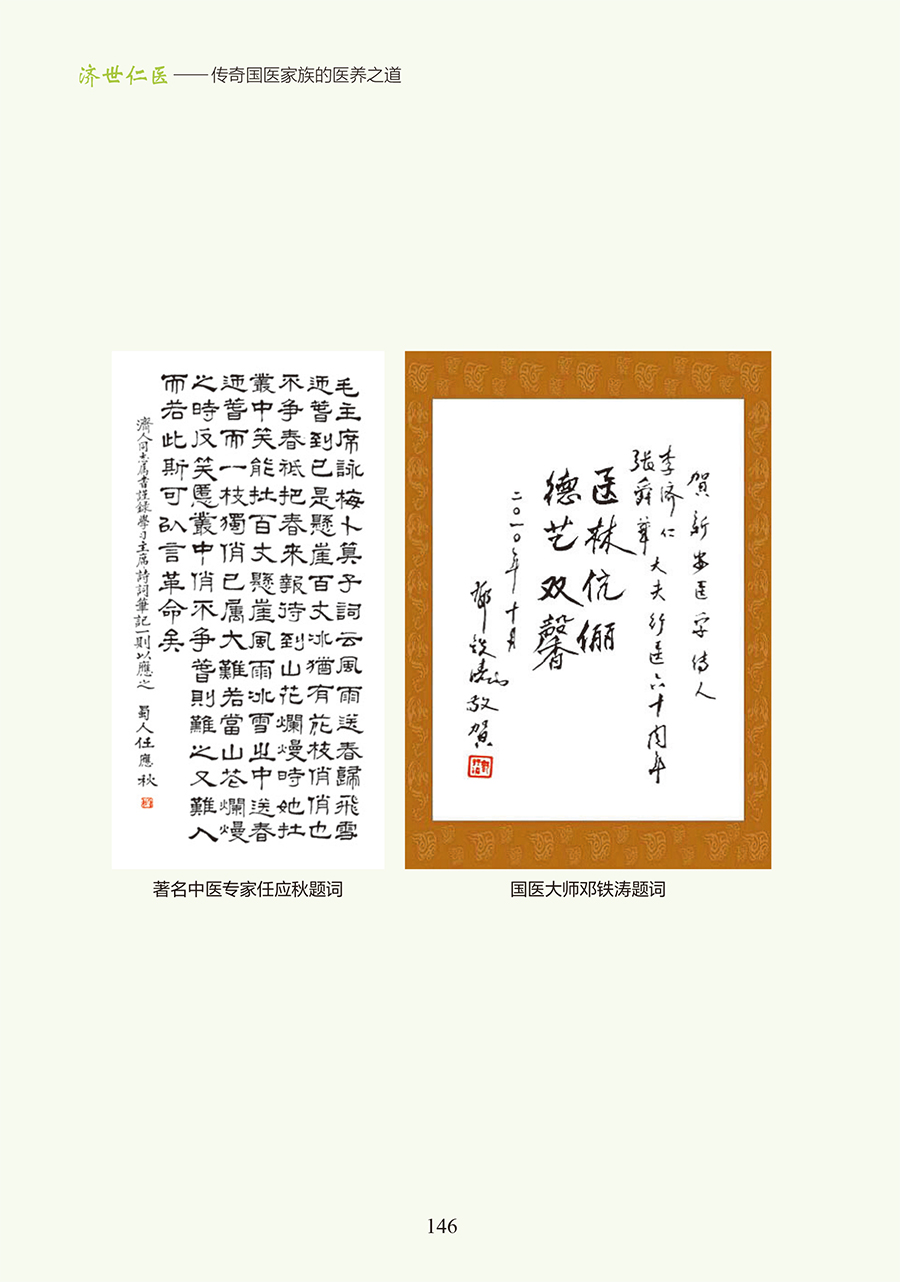 济世仁医——传奇国医家族的医养之道
毛主席詠梅卜算子詞云風雨送春歸飛雪
迎春到已是懸崖百丈冰猶有花枝俏俏也
不争春祗把春來報待到山花爛熳時她在
叢中笑能在百丈懸崖風雨冰雪之中送春
迎春而一枝獨俏已属大難若當山花爛熳
之時反笑叢中俏不争春則難之又難人
而若此斯可以言革命矣
濟人同志属書謹録學习主席詩詞筆記一則以應之 蜀人任應秋
著名中医专家任应秋题词
賀新安医学传人
李济仁
张舜華大夫行医六十周年
医林伉俪
德艺双馨
二〇一〇年十月
邓铁涛敬賀
国医大师邓铁涛题词
146